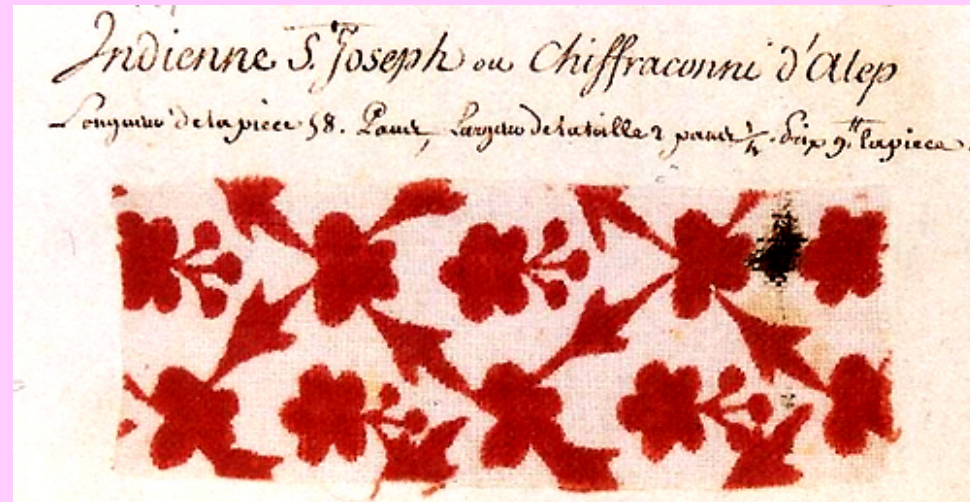 Indienne S.^t Joseph ou Chiffraconni d'Alep
Longueur de la piece 58. Pans, Largeur de la toille 2 pans 1/4. Prix 9.^tt la piece.